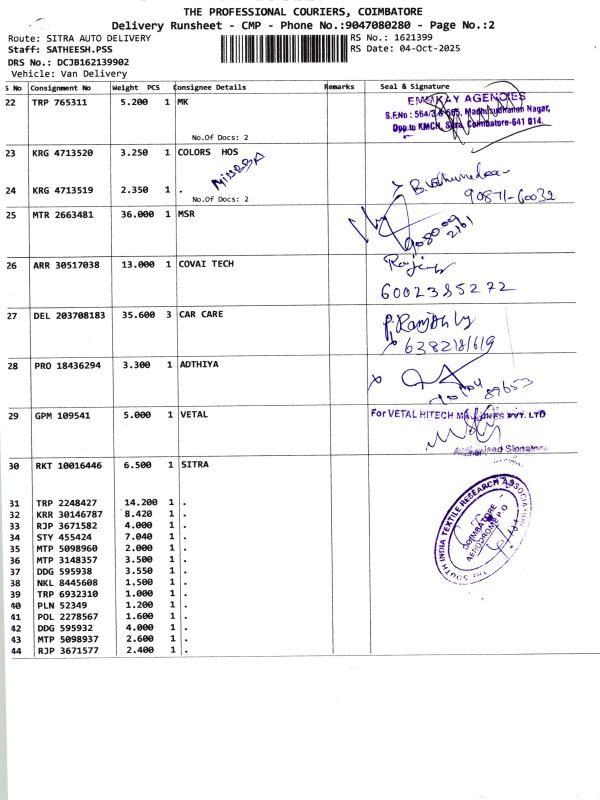 THE PROFESSIONAL COURIERS, COIMBATORE
Delivery Runsheet - CMP - Phone No.:9047080280 - Page No.:2
Route: SITRA AUTO DELIVERY RS No.: 1621399
Staff: SATHEESH.PSS RS Date: 04-Oct-2025
DRS No.: DCJB162139902
Vehicle: Van Delivery
S No Consignment No Weight PCS Consignee Details Remarks Seal & Signature
22 TRP 765311 5.200 1 MK
EMMKAY AGENCIES
Madhusudhanan Nagar,
Opp.to KMCH, Sitra, Coimbatore-641 014.
No.Of Docs: 2
23 KRG 4713520 3.250 1 COLORS HOS
24 KRG 4713519 2.350 1 .
No.Of Docs: 2
90871-60032
25 MTR 2663481 36.000 1 MSR
26 ARR 30517038 13.000 1 COVAI TECH
6002385272
27 DEL 203708183 35.600 3 CAR CARE
28 PRO 18436294 3.300 1 ADTHIYA
29 GPM 109541 5.000 1 VETAL
For VETAL HITECH MACHINES PVT. LTD
Authorised Signatory
30 RKT 10016446 6.500 1 SITRA
THE SOUTH INDIA TEXTILE RESEARCH ASSOCIATION
COIMBATORE
AERODROME P.O
31 TRP 2248427 14.200 1 .
32 KRR 30146787 8.420 1 .
33 RJP 3671582 4.000 1 .
34 STY 455424 7.040 1 .
35 MTP 5098960 2.000 1 .
36 MTP 3148357 3.500 1 .
37 DDG 595938 3.550 1 .
38 NKL 8445608 1.500 1 .
39 TRP 6932310 1.000 1 .
40 PLN 52349 1.200 1 .
41 POL 2278567 1.600 1 .
42 DDG 595932 4.000 1 .
43 MTP 5098937 2.600 1 .
44 RJP 3671577 2.400 1 .